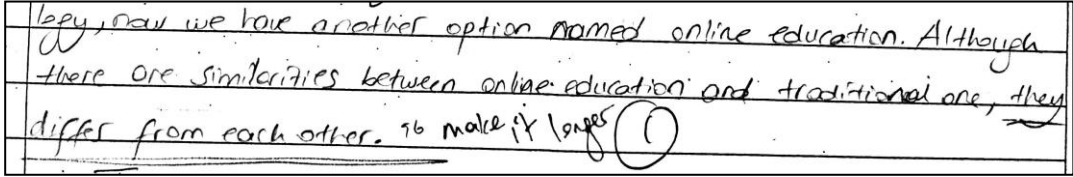 logy, now we have another option named online education. Although
there are similarities between online education and traditional one, they
differ from each other. make it longer 1